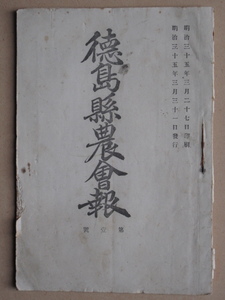 明治三十五年三月二十七日印刷
明治三十五年三月三十一日發行
德島縣農會報
第壹號